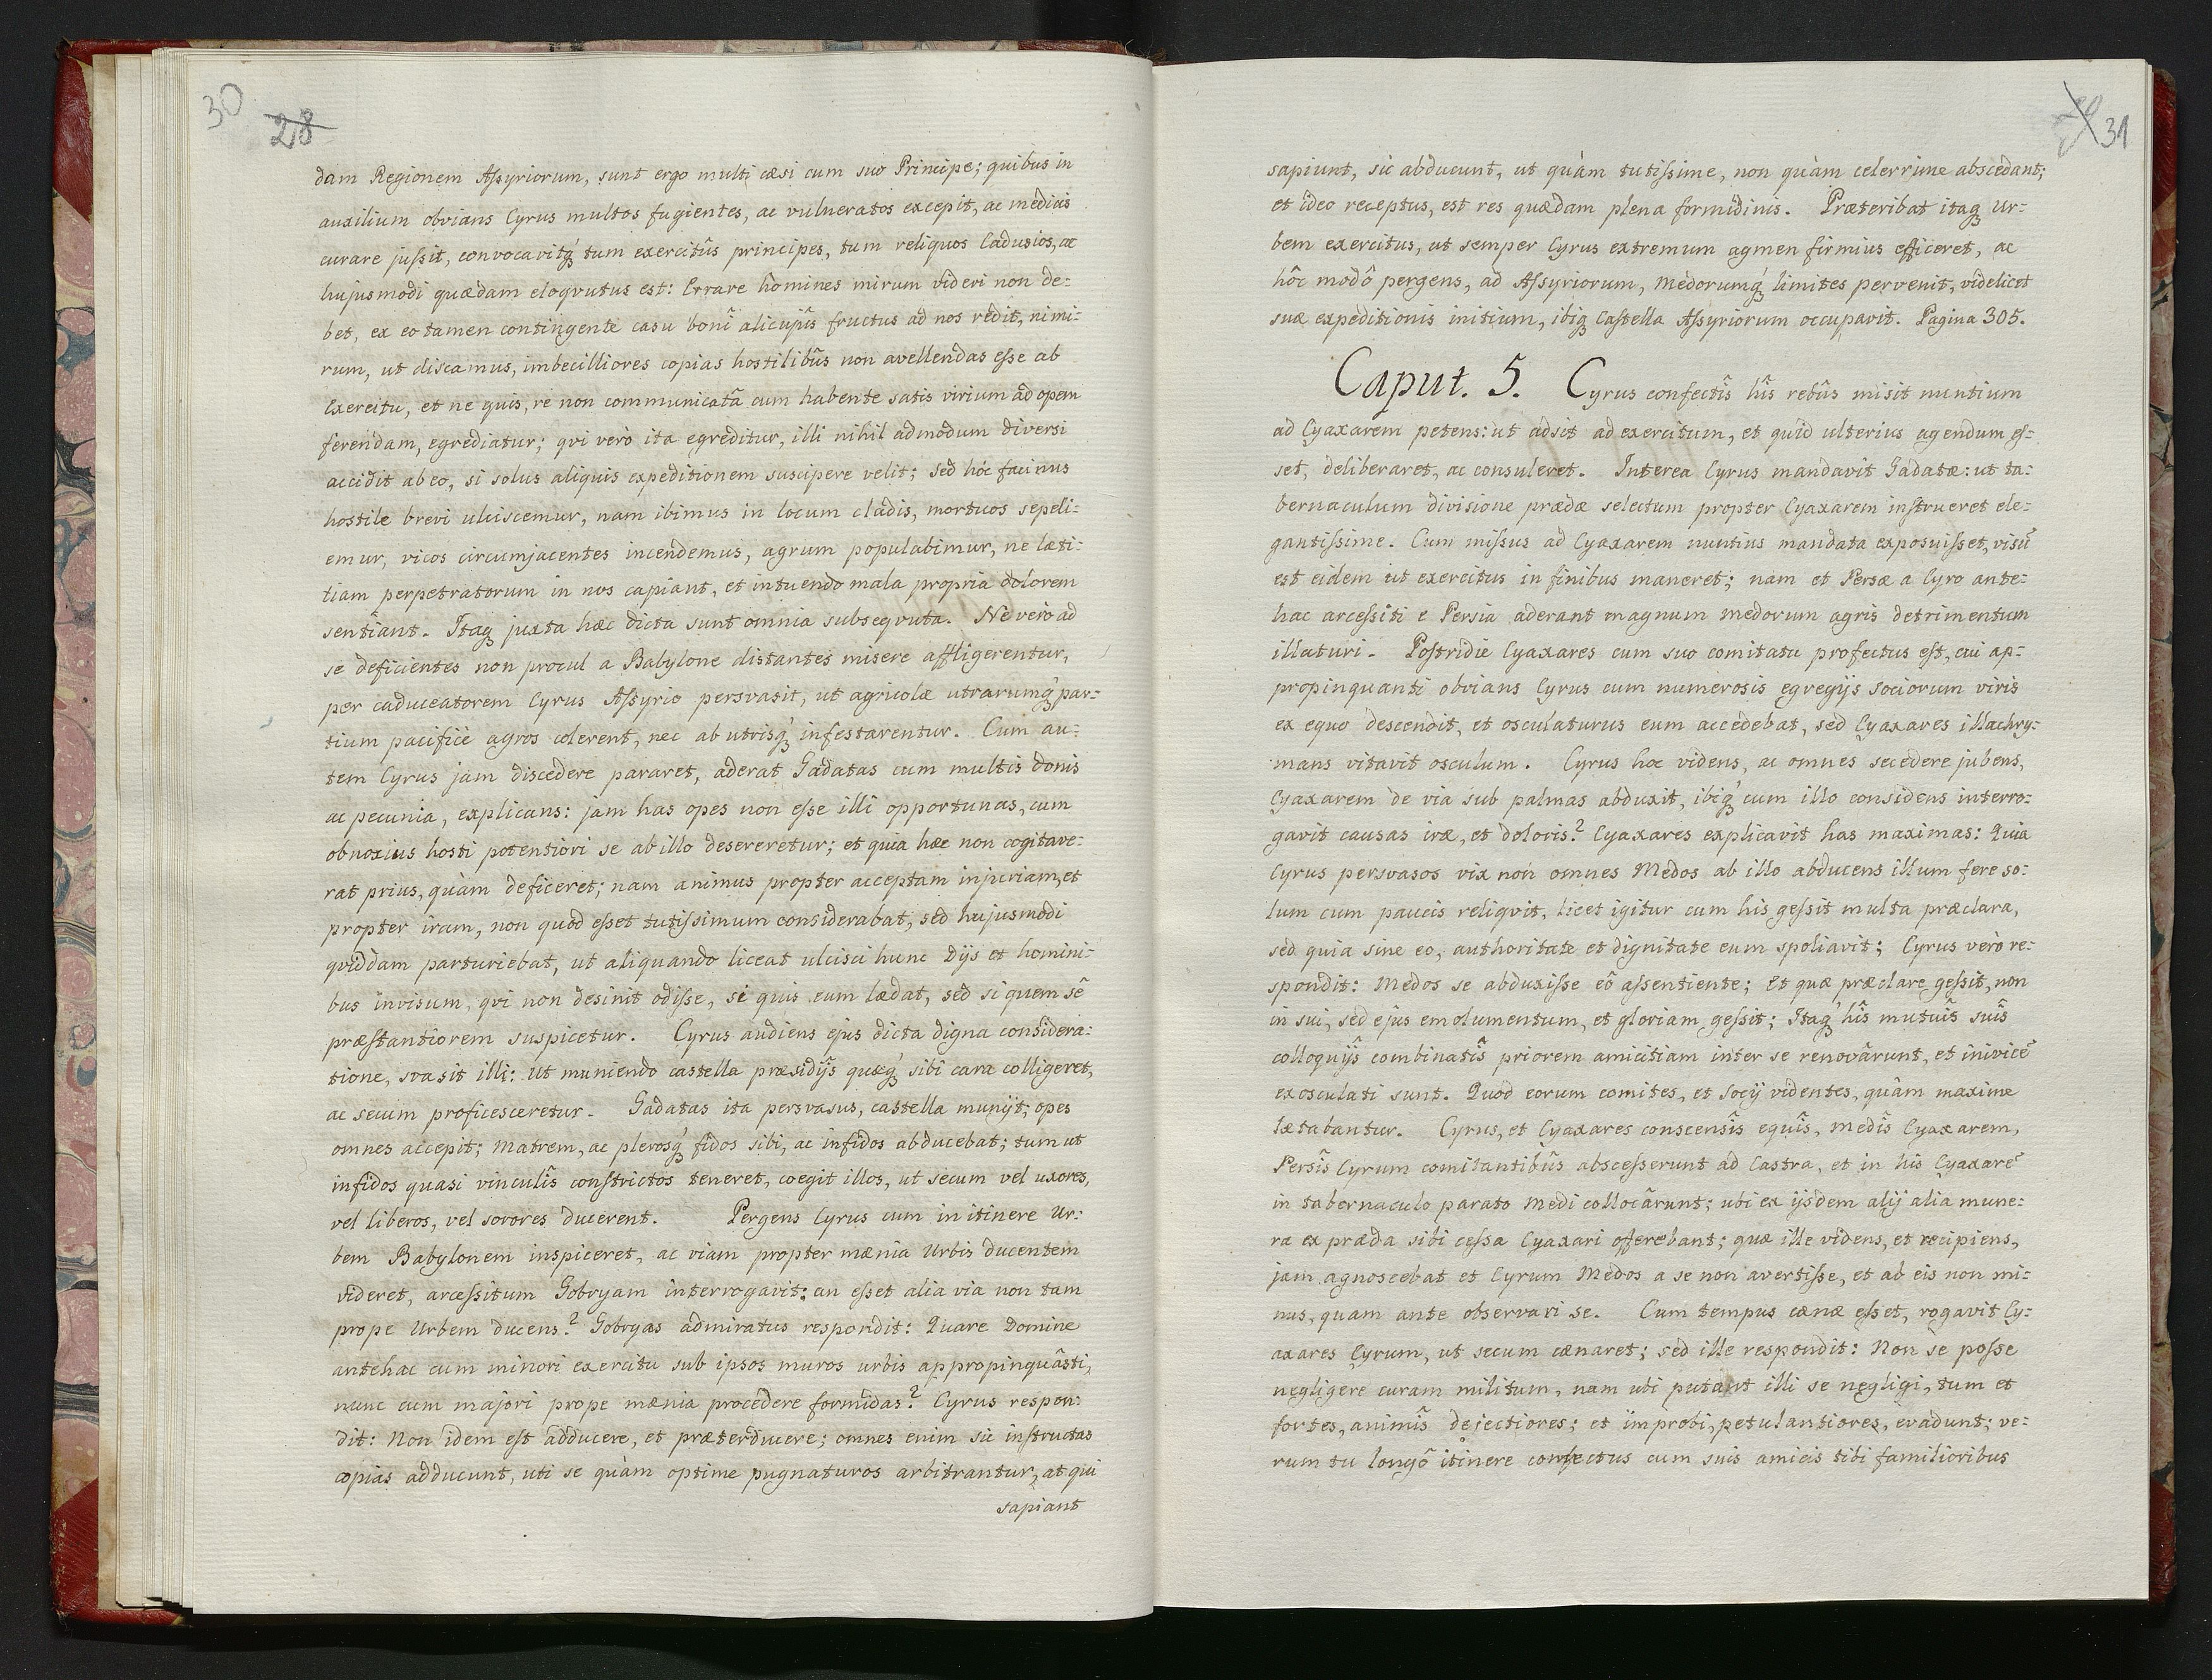 30
28
dam Regionem Assyriorum, sunt ergo multi cæsi cum suo Principe; quibus in
auxilium obvians Cyrus multos fugientes, ac vulneratos excepit, ac medicis
curare jussit, convocavitq́ tum exercitûs principes, tum reliquos Cadusios, ac
hujusmodi quædam eloqvutus est: Errare homines mirum videri non de-
bet, ex eo tamen contingente casu boni alicujus fructus ad nos redit, nimi-
rum, ut discamus, imbecilliores copias hostilibûs non avellendas esse ab
Exercitu, et ne quis, re non communicatâ cum habente satis virium ad opem
ferendam, egrediatur; qvi verò ita egreditur, illi nihil admodum diversi
accidit ab eo, si solus aliquis expeditionem suscipere velit; sed hóc facinus
hostile brevi ulciscemur, nam ibimus in locum cladis, mortuos sepeli-
emur, vicos circumjacentes incendemus, agrum populabimur, ne læti-
tiam perpetratorum in nos capiant, et intuendo mala propria dolorem
sentiant. Itaq juxta hæc dicta sunt omnia subseqvuta. Ne verò ad
se deficientes non procul a Babylone distantes misere affligerentur,
per caduceatorem Cyrus Assyrio persvasit, ut agricolæ utrarumq́ par-
tium pacificè agros colerent, nec ab utrisq́ infestarentur. Cum au-
tem Cyrus jam discedere pararet, aderat Gadatas cum multis donis
ac pecunia, explicans: jam has opes non esse illi opportunas, cum
obnoxius hosti potentiori se ab illo desereretur; et quia hæc non cogitave-
rat prius, quàm deficeret; nam animus propter acceptam injuriam, et
propter iram, non quod esset tutissimum considerabat, sed hujusmodi
qviddam parturiebat, ut aliquando liceat ulcisci hunc Dijs et homini-
bus invisum, qvi non desinit odisse, si quis eum lædat, sed si quem sê
præstantiorem suspicetur. Cyrus audiens ejus dicta digna considera-
tione, svasit illi: ut muniendo castella præsidijs quæq́ sibi cara colligeret,
ac secum proficesceretur. Gadatas ita persvasus, castella munijt; opes
omnes accepit; Matrem, ac plerosq́ fidos sibi, ac infidos abducebat; tum ut
infidos quasi vinculîs constrictos teneret, coegit illos, ut secum vel uxores,
vel liberos, vel sorores ducerent. Pergens Cyrus cum in itinere Ur-
bem Babylonem inspiceret, ac viam propter mænia Urbis ducentem
videret, arcessitum Gobryam interrogavit: an esset alia via non tam
prope Urbem ducens? Gobryas admiratus respondit: Quare Domine
antehac cum minori exercitu sub ipsos muros urbis appropinquâsti,
nunc cum majori prope mænia procedere formidas? Cyrus respon-
dit: Non idem est adducere, et præterducere; omnes enim sic instructas
copias adducunt, uti se quàm optime pugnaturos arbitrantur, at qui
sapiant
31
sapiunt, sic abducunt, ut quàm tutissime, non quàm celerrime abscedant;
et ideo receptus, est res quædam plena formidinis. Præteribat itaq Ur-
bem exercitus, ut semper Cyrus extremum agmen firmius efficeret, ac
hôc modô pergens, ad Assyriorum, Medorumq́ limites pervenit, videlicet
suæ expeditionis initium, ibiq Castella Assyriorum occupavit. Pagina 305.
Caput. 5. Cyrus confectîs hîs rebûs misit nuntium
ad Cyaxarem petens: ut adsit ad exercitum, et quid ulterius agendum es-
set, deliberaret, ac consuleret. Interea Cyrus mandavit Gadatæ: ut ta-
bernaculum divisione prædæ selectum propter Cyaxarem instrueret ele-
gantissime. Cum missus ad Cyaxarem nuntius mandata exposuisset, visũ
est eidem ut exercitus in finibus maneret; nam et Persæ a Cyro ante-
hac arcessiti e Persia aderant magnum Medorum agris detrimentum
illaturi. Postridie Cyaxares cum suo comitatu profectus est, cui ap-
propinquanti obvians Cyrus cum numerosis egregijs sociorum viris
ex equo descendit, et osculaturus eum accedebat, sed Cyaxares illachry-
mans vitavit osculum. Cyrus hoc videns, ac omnes secedere jubens,
Cyaxarem de via sub palmas abduxit, ibiq́ cum illo considens interro-
gavit causas iræ, et doloris? Cyaxares explicavit has maximas: Quia
Cyrus persvasos vix non omnes Medos ab illo abducens illum fere so-
lum cum paucis reliqvit, licet igitur cum his gessit multa præclara,
sed quia sine eo, authoritate et dignitate eum spoliavit; Cyrus verò re-
spondit: Medos se abduxisse eô assentiente; Et quæ præclare gessit, non
in sui, sed ejus emolumentum, et gloriam gessit; Itaq́ hîs mutuîs suîs
colloquijs combinatîs priorem amicitiam inter se renovârunt, et inivicẽ
exosculati sunt. Quod eorum comites, et Socij videntes, quàm maxime
lætabantur. Cyrus, et Cyaxares conscensîs equîs, Medîs Cyaxarem,
Persîs Cyrum comitantibûs abscesserunt ad Castra, et in his Cyaxarẽ
in tabernaculo parato Medi collocârunt; ubi ex ijsdem alij alia mune-
ra ex præda sibi cessa Cyaxari offerebant; quæ ille videns, et recipiens,
jam agnoscebat et Cyrum Medos a se non avertisse, et ab eis non mi-
nus, quam ante observari se. Cum tempus cænæ esset, rogavit Cy-
axares Cyrum, ut secum cænaret; sed ille respondit: Non se posse
negligere curam militum, nam ubi putant illi se negligi, tum et
fortes, animîs dejectiores; et improbi, petulantiores, evadunt; ve-
rum tu longô itinere confectus cum suis amicis tibi familioribus